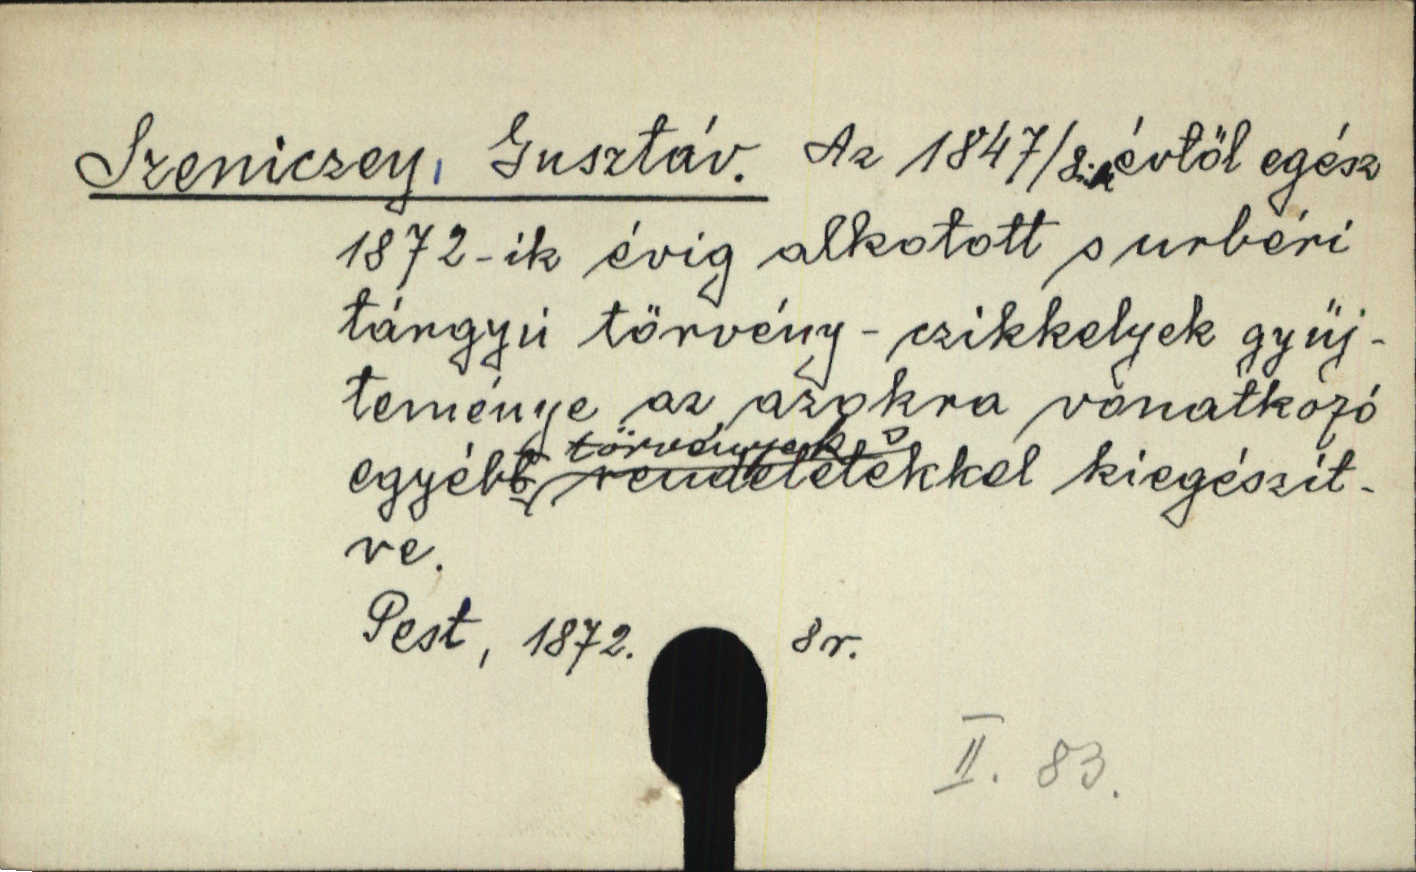 Szeniczey, Gusztáv. Az 1847/8.ik évtöl egész
1872-ik évig alkotott s urbéri
tárgyú törvény-czikkelyek gyüj-
teménye az azokra vonatkozó
egyébb törvények s
rendeletekkel kiegészit-
ve.
Pest, 1872. 8r.
II. 83.